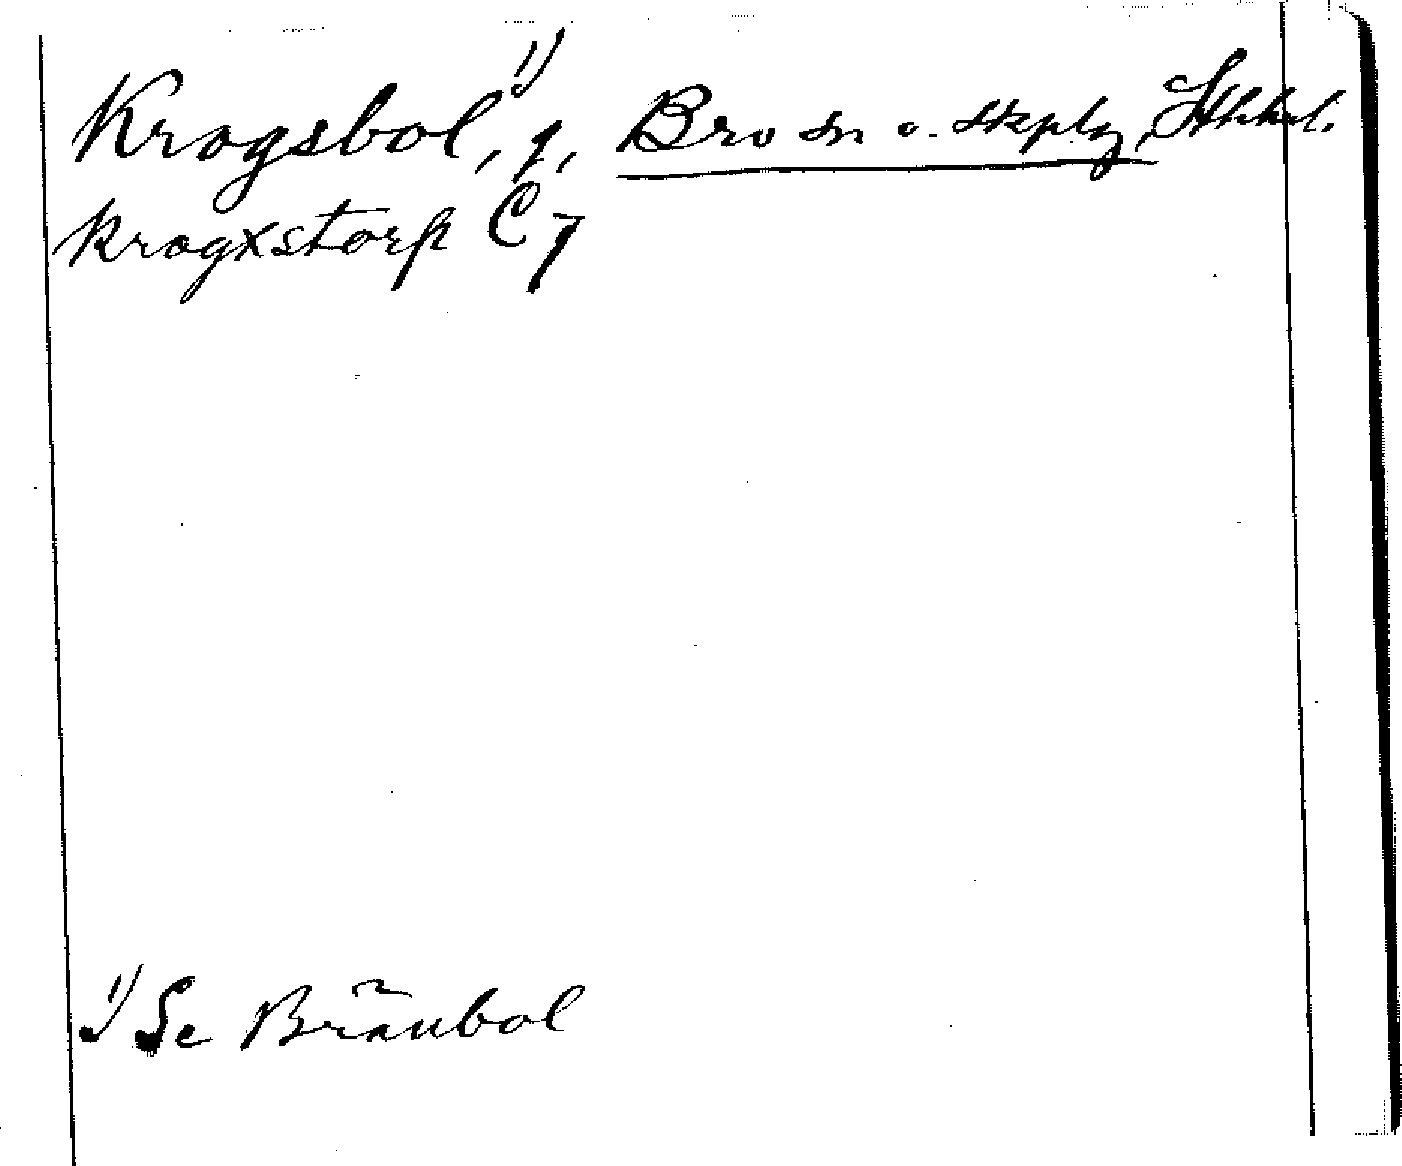 Krogsbol,¹⁾ g, Bro sn o. skplg, Sthlm l.
krogxstorp C 7
¹⁾ Se Bränbol